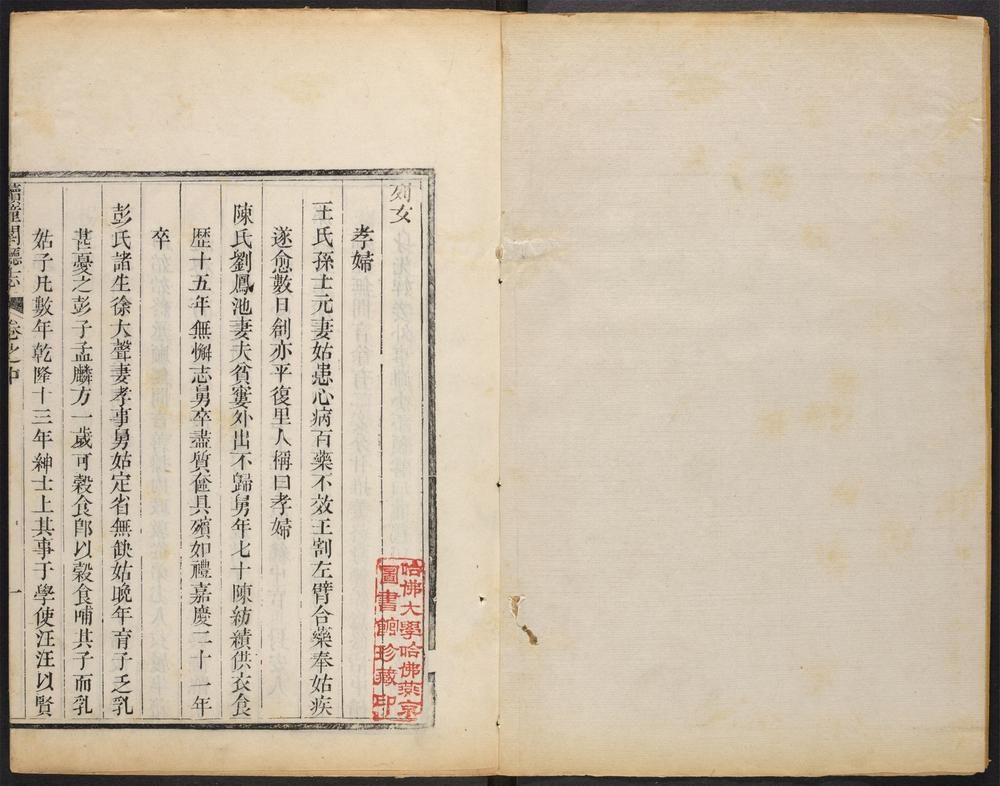 列女
孝婦
王氏孫士元妻姑患心病百藥不效王割左臂合藥奉姑疾
遂愈數日創亦平復里人稱曰孝婦
陳氏劉鳳池妻夫貧窶外出不歸舅年七十陳紡績供衣食
歷十五年無懈志舅卒盡質奩具殯如禮嘉慶二十一年
卒
彭氏諸生徐大聲妻孝事舅姑定省無缺姑晚年育子乏乳
甚憂之彭子孟麟方一歲可穀食郎以穀食哺其子而乳
姑子凡數年乾隆十三年紳士上其事于學使汪汪以賢
續潼關廳志
卷之中
一
哈佛大學哈佛燕京
圖書館珍藏印